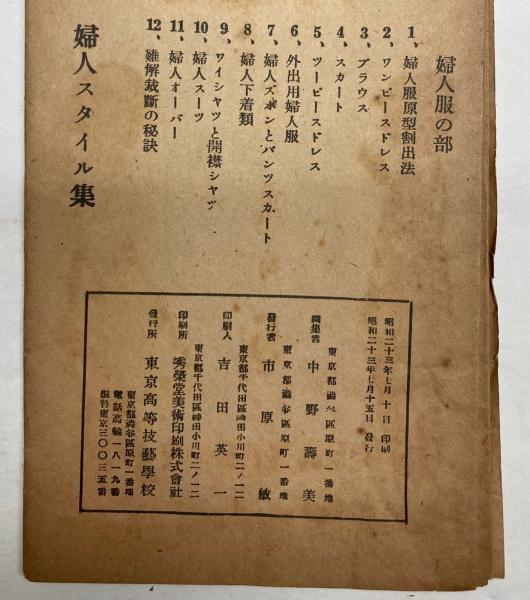 婦人服の部
1、婦人服原型割出法
2、ワンピースドレス
3、ブラウス
4、スカート
5、ツーピースドレス
6、外出用婦人服
7、婦人ズボンとパンツスカート
8、婦人下着類
9、ワイシャツと開襟シャツ
10、婦人スーツ
11、婦人オーバー
12、難解裁斷の秘訣
婦人スタイル集
昭和二十三年七月十日 印刷
昭和二十三年七月十五日 發行
東京都澁谷區原町一番地
編集者 中野壽美
東京都澁谷區原町一番地
發行者 市原敏
東京都千代田區神田小川町二ノ一二
印刷人 吉田英一
東京都千代田區神田小川町二ノ一二
印刷所 秀榮堂美術印刷株式會社
發行所 東京高等技藝學校
東京都澁谷區原町一番地
電話高輪一八一九番
振替東京三〇〇三五番